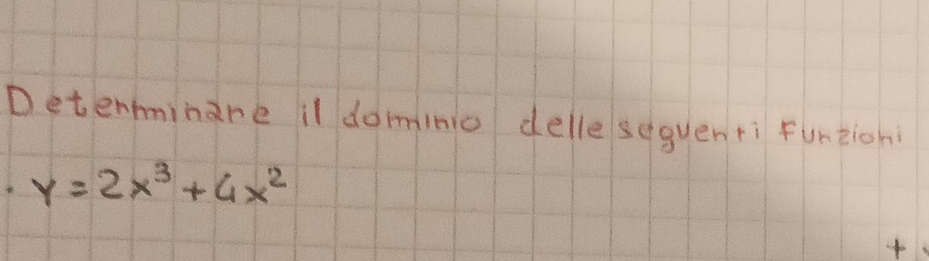 Determinare il dominio delle seguenti funzioni
. y = 2x³ + 4x²
+